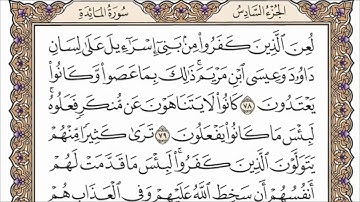 الجزء السادس سورة المائدة
لُعِنَ ٱلَّذِينَ كَفَرُوا۟ مِنۢ بَنِىٓ إِسْرَٰٓءِيلَ عَلَىٰ لِسَانِ
دَاوُۥدَ وَعِيسَى ٱبْنِ مَرْيَمَ ۚ ذَٰلِكَ بِمَا عَصَوا۟ وَّكَانُوا۟
يَعْتَدُونَ ۝٧٨ كَانُوا۟ لَا يَتَنَاهَوْنَ عَن مُّنكَرٍ فَعَلُوهُ ۚ
لَبِئْسَ مَا كَانُوا۟ يَفْعَلُونَ ۝٧٩ تَرَىٰ كَثِيرًا مِّنْهُمْ
يَتَوَلَّوْنَ ٱلَّذِينَ كَفَرُوا۟ ۚ لَبِئْسَ مَا قَدَّمَتْ لَهُمْ
أَنفُسُهُمْ أَن سَخِطَ ٱللَّهُ عَلَيْهِمْ وَفِى ٱلْعَذَابِ هُمْ